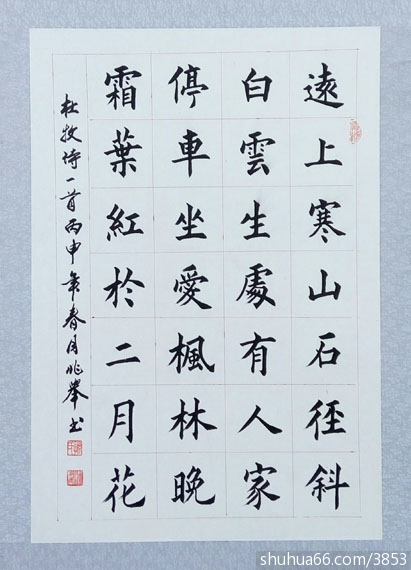 遠上寒山石徑斜
白雲生處有人家
停車坐愛楓林晚
霜葉紅於二月花
杜牧诗一首丙申年春月兆举书
shuhua66.com/3853